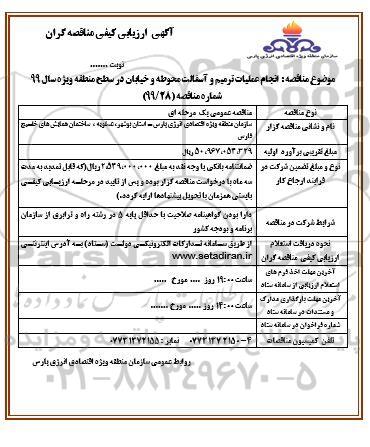 آگهی ارزیابی کیفی مناقصه گران
سازمان منطقه ویژه اقتصادی انرژی پارس
نوبت .......
موضوع مناقصه: انجام عملیات ترمیم و آسفالت محوطه و خیابان در سطح منطقه ویژه سال ۹۹
شماره مناقصه (۹۹/۲۸)
نوع مناقصه
مناقصه عمومی یک مرحله ای
نام و نشانی مناقصه گزار
سازمان منطقه ویژه اقتصادی انرژی پارس – استان بوشهر، عسلویه ، ساختمان همایش های خلیج فارس
مبلغ تقریبی برآورد اولیه
۵۰،۹۶۷،۰۵۳،۳۲۹ ریال
نوع و مبلغ تضمین شرکت در فرایند ارجاع کار
ضمانتنامه بانکی یا وجه نقد به مبلغ ۲،۵۴۹،۰۰۰،۰۰۰ ریال(که قابل تمدید به مدت
سه ماه با درخواست مناقصه گزار بوده و پس از تایید در مرحله ارزیابی کیفی
بایستی همزمان با تحویل پیشنهادها ارایه گردد.)
شرایط شرکت در مناقصه
دارا بودن گواهینامه صلاحیت با حداقل پایه ۵ در رشته راه و ترابری از سازمان
برنامه و بودجه کشور
نحوه دریافت استعلام
ارزیابی کیفی مناقصه گران
از طریق سامانه تدارکات الکترونیکی دولت (ستاد) به آدرس اینترنتی
www.setadiran.ir
آخرین مهلت اخذ فرم های
استعلام ارزیابی از سامانه ستاد
ساعت ۱۹:۰۰ روز .... مورخ .....
آخرین مهلت بارگذاری مدارک
و مستندات در سامانه ستاد
ساعت ۱۴:۰۰ روز ..... مورخ .......
شماره فراخوان در سامانه ستاد
تلفن کمیسیون مناقصات
۰۷۷۳۱۳۷۲۱۵۰-۴ نمابر: ۰۷۷۳۱۳۷۲۱۵۵
روابط عمومی سازمان منطقه ویژه اقتصادی انرژی پارس
۰۲۱-۸۸۳۴۹۶۷۰-۵